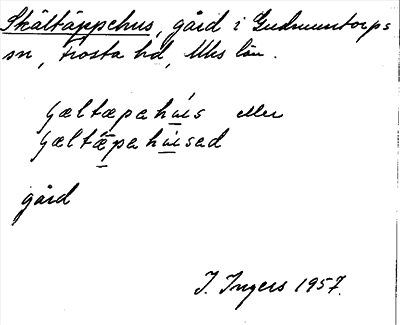 Skältäppehus, gård i Gudmuntorps
sn, Frosta hd, Mhs län.
ɥæltæpahús eller
ɥæltæpahúsad
gård
I. Ingers 1957.